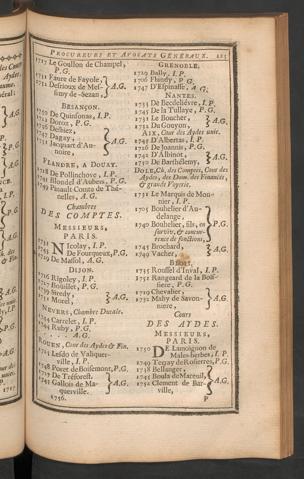 PROCUREURS ET AVOCATS GÉNÉRAUX.
1717 Le Goullon de Champel, P. G.
1711 Faure de Fayole,
1721 Desrioux de Messimy de-Bezan, A.G.
BESANÇON.
Doroz, P. G.
Desbiez,
Dagay, A.G.
Jacquart d'Annoire,
FLANDRE, A DOUAY.
De Pollinchove, I. P.
Blondel d'Aubers, P. G.
Pinault Comte de Thénelles, A. G.
Chambre
DES COMPTES.
MESSIEURS,
PARIS.
Nicolay, I. P.
De Fourqueux, P.G.
De Massol, A. G.
DIJON.
1716 Rigoley, I. P.
Bouillet, P. G.
Seredy,
Morel, A. G.
NEVERS, Chambre Ducale.
Carrelet, I. P.
Ruby, P. G.
. . . . . A. G.
ROUEN, Cour des Aydes & Fin.
Lesdo de Valiquerville, I. P.
1748 Poret de Boisemont, P.G.
De Tréforest,
Gallois de Maquerville. A.G.
1756.
GRENOBLE.
1729 Bally, I. P.
1706 Flandy, P. G.
1747 D'Espinasse, A. G.
NANTES.
De Becdelièvre, I. P.
1745 De la Tullaye, P. G.
Le Boucher,
Du Gouyon, A. G.
AIX, Cour des Aydes unie.
D'Albertas, I. P.
De Joannis, P. G.
D'Albinot,
De Barthelemy, A.G.
DOLE, Ch. des Comptes, Cour des Aydes, des Dom. des Finances, & grande Voyerie.
Le Marquis de Monnier, I. P.
1705 Bouhelier d'Audelange,
1740 Bouhelier, fils, en survite, & concurrence de fonctions, P.G.
1745 Brochard,
1749 Vacher, A. G.
BLOIS.
Roussel d'Inval, I. P.
Rangeard de la Boissiere, P. G.
1719 Chevalier,
1732 Mahy de Savonniere, A.G.
Cours
DES AYDES.
MESSIEURS,
PARIS.
1750 De Lamoignon de Malesherbes, I. P.
1749 Terray de Rosieres, P.G.
1748 Bellanger,
Boula de Mareuil,
1752 Clement de Barville, A.G.
P